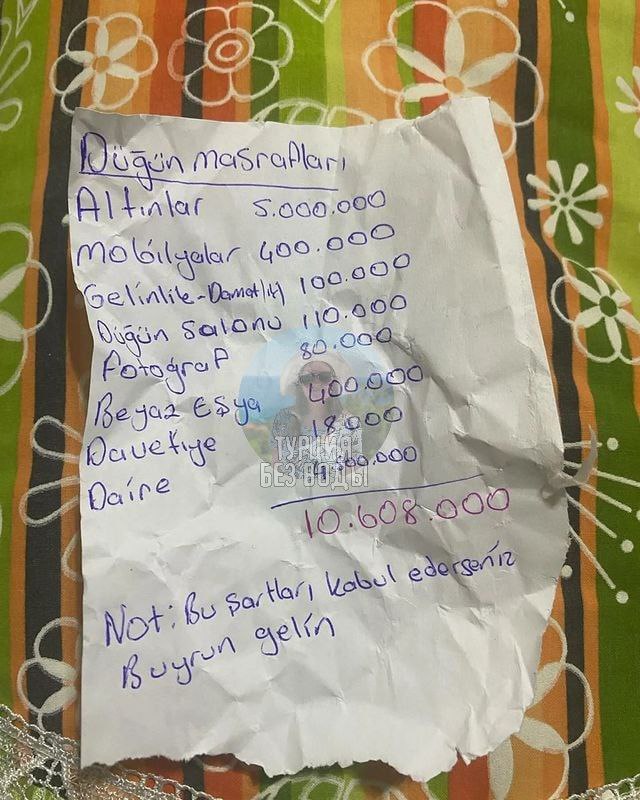 Düğün masrafları
Altınlar 5.000.000
mobilyalar 400.000
Gelinlik-Damatlık 100.000
Düğün salonu 110.000
fotoğraf 80.000
Beyaz Eşya 400.000
Davetiye 18.000
Daire
10.608.000
Not: Bu şartları kabul ederseniz
Buyrun gelin
ТУРЦИЯ
БЕЗ ВОДЫ